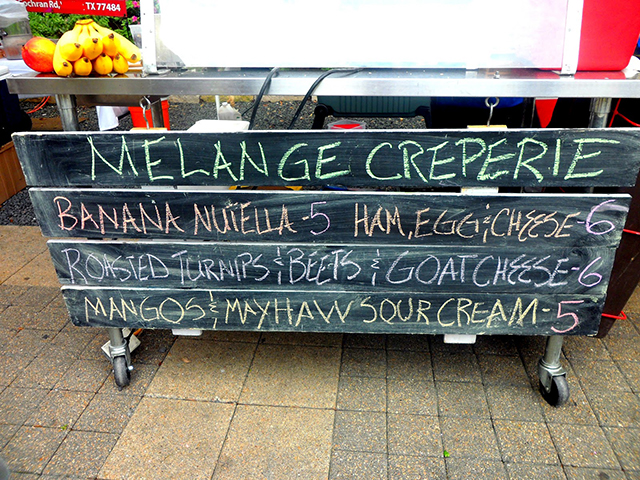 ochran Rd, TX 77484
MELANGE CREPERIE
BANANA NUTELLA-5 HAM, EGG & CHEESE-6
ROASTED TURNIPS & BEETS & GOAT CHEESE-6
MANGOS & MAYHAW SOUR CREAM-5